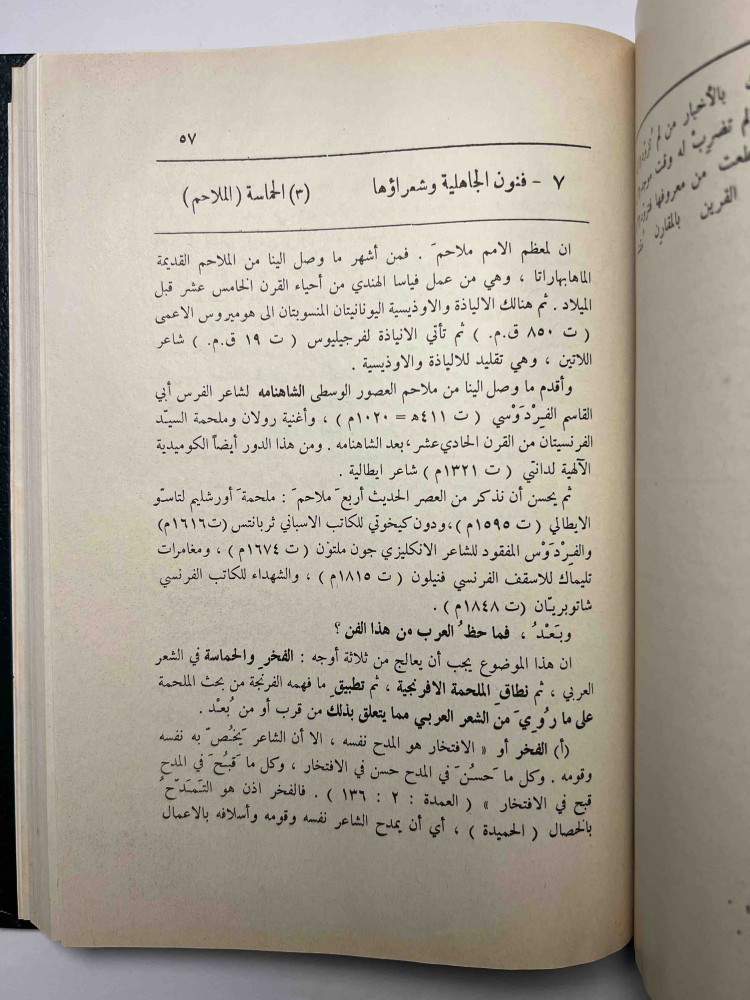 ٥٧
٧ - فنون الجاهلية وشعراؤها (٣) الحماسة (الملاحم)
ان لمعظم الامم ملاحمَ . فمن أشهر ما وصل الينا من الملاحم القديمة
الماهابهاراتا ، وهي من عمل فياسا الهندي من أحياء القرن الخامس عشر قبل
الميلاد . ثم هنالك الالياذة والاوذيسية اليونانيتان المنسوبتان الى هوميروس الاعمى
( ت ٨٥٠ ق.م. ) ثم تأتي الانياذة لفرجيليوس ( ت ١٩ ق.م. ) شاعر
اللاتين ، وهي تقليد للالياذة والاوذيسية .
وأقدم ما وصل الينا من ملاحم العصور الوسطى الشاهنامه لشاعر الفرس أبي
القاسم الفِرْدَوْسي ( ت ٤١١ه = ١٠٢٠م ) ، وأغنية رولان وملحمة السيّد
الفرنسيتان من القرن الحادي عشر، بعد الشاهنامه . ومن هذا الدور أيضاً الكوميدية
الآلهية لدانتي ( ت ١٣٢١م ) شاعر ايطالية .
ثم يحسن أن نذكر من العصر الحديث أربعَ ملاحمَ : ملحمةَ أورشليم لتاسّو
الايطالي ( ت ١٥٩٥م )، ودون كيخوتي للكاتب الاسباني ثربانتس (ت١٦١٦م)
والفِرْدَوْس المفقود للشاعر الانكليزي جون ملتوْن ( ت ١٦٧٤م ) ، ومغامرات
تليماك للاسقف الفرنسي فنيلون ( ت ١٨١٥م ) ، والشهداء للكاتب الفرنسي
شاتوبريّان (ت ١٨٤٨م ) .
وبَعْدُ ، فما حظُ العرب من هذا الفن ؟
ان هذا الموضوع يجب أن يعالج من ثلاثة أوجه : الفخرِ والحماسة في الشعر
العربي ، ثم نطاقِ الملحمة الافرنجية ، ثم تطبيقِ ما فهمه الفرنجة من بحث الملحمة
على ما رُوِيَ من الشعر العربي مما يتعلق بذلك من قرب أو من بُعْد .
(أ) الفخر أو « الافتخار هو المدح نفسه ، الا أن الشاعر يَخُصّ به نفسه
وقومه . وكل ما حَسُنَ في المدح حسن في الافتخار ، وكل ما قَبُحَ في المدح
قبح في الافتخار » ( العمدة : ٢ : ١٣٦ ) . فالفخر اذن هو التَمَدّحُ
بالخصال ( الحميدة ) ، أي أن يمدح الشاعر نفسه وقومه وأسلافه بالاعمال
بالأخبار من لم
لم تضرِبْ له وقت
من معروفها
القرين بالمقارِن